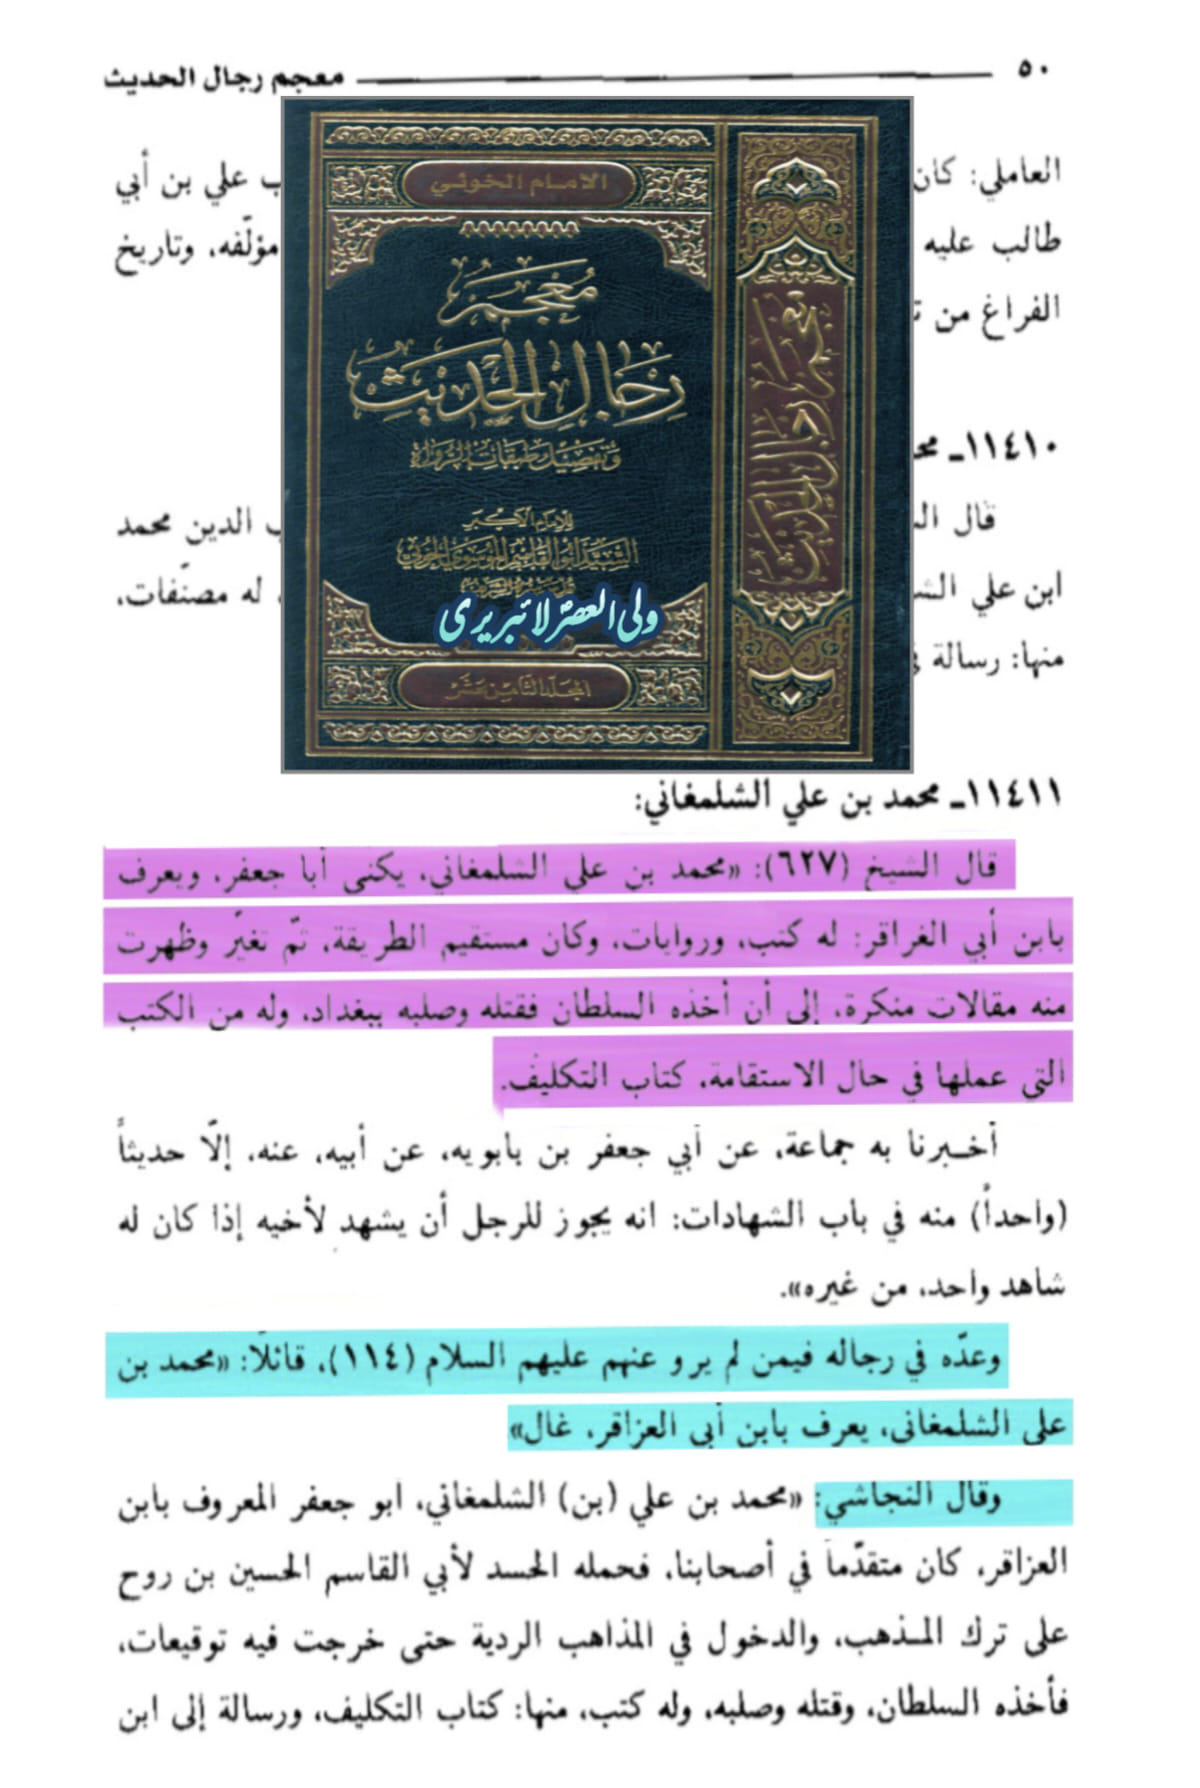 ٥٠ معجم رجال الحديث
العاملي: كان ب علي بن أبي
طالب عليه مؤلّفه، وتاريخ
الفراغ من
١١٤١٠ـ
قال الدين محمد
ابن علي له مصنّفات،
منها: رسالة
الامام الخوئي
مُعْجَمُ
رِجَالِ الحَدِيثِ
وَتَفصِيل طَبَقَات الرُّوَاة
للامام الاكبر
السَّيِّد ابو القَاسِم الموسوي الخوئي
ولی العصر لائبریری
المجلد الثامن عشر
معجم رجال الحديث
١١٤١١ـ محمد بن علي الشلمغاني:
قال الشيخ (٦٢٧): «محمد بن علي الشلمغاني، يكنى أبا جعفر، ويعرف
بابن أبي الغراقر: له كتب، وروايات، وكان مستقيم الطريقة، ثمّ تغيّر وظهرت
منه مقالات منكرة، إلى أن أخذه السلطان فقتله وصلبه ببغداد، وله من الكتب
التي عملها في حال الاستقامة، كتاب التكليف.
أخـبرنا به جماعة، عن أبي جعفر بن بابويه، عن أبيه، عنه، إلّا حديثاً
(واحداً) منه في باب الشهادات: انه يجوز للرجل أن يشهد لأخيه إذا كان له
شاهد واحد، من غيره».
وعدّه في رجاله فيمن لم يرو عنهم عليهم السلام (١١٤)، قائلاً: «محمد بن
علي الشلمغاني، يعرف بابن أبي العزاقر، غال»
وقال النجاشي: «محمد بن علي (بن) الشلمغاني، ابو جعفر المعروف بابن
العزاقر، كان متقدّماً في أصحابنا، فحمله الحسد لأبي القاسم الحسين بن روح
على ترك المـذهب، والدخول في المذاهب الردية حتى خرجت فيه توقيعات،
فأخذه السلطان، وقتله وصلبه، وله كتب، منها: كتاب التكليف، ورسالة إلى ابن